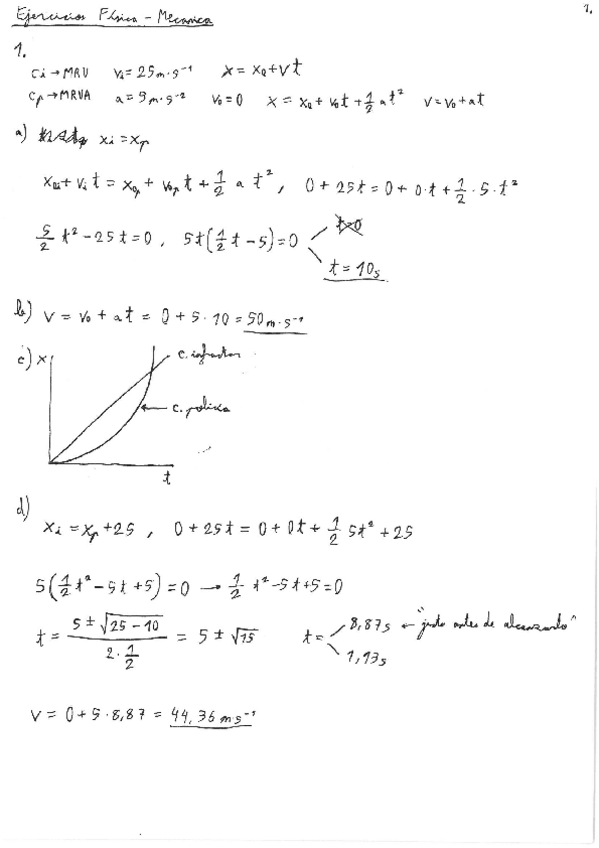 Ejercicios Física - Mecanica 1.
1.
Ci → MRU Vi = 25m·s⁻¹ x = x₀ + vt
Cp → MRVA a = 5m·s⁻² V₀ = 0 x = x₀ + v₀t + 1/2 at² v = v₀ + at
a) xi = xp
x₀i + vi t = x₀p + v₀p t + 1/2 a t², 0 + 25t = 0 + 0·t + 1/2·5·t²
5/2 t² - 25t = 0, 5t(1/2 t - 5) = 0
t=0
t = 10s
b) v = v₀ + at = 0 + 5·10 = 50m·s⁻¹
c) x
c. infractor
c. policía
t
d)
xi = xp + 25, 0 + 25t = 0 + 0t + 1/2 5t² + 25
5(1/2 t² - 5t + 5) = 0 → 1/2 t² - 5t + 5 = 0
t = (5 ± √(25 - 10))/(2·1/2) = 5 ± √15 t = 8,87s ← "justo antes de alcanzarlo"
1,13s
v = 0 + 5·8,87 = 44,36 ms⁻¹